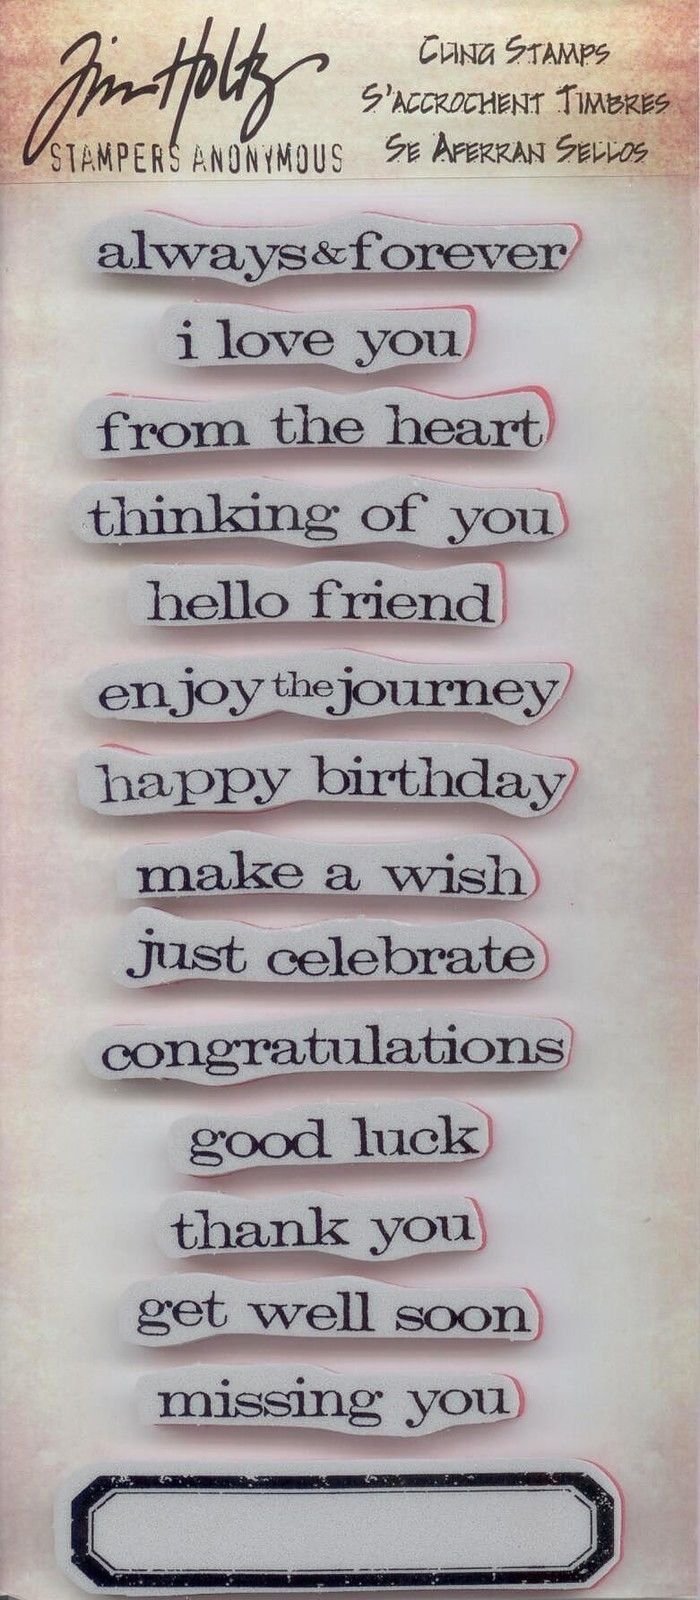 Tim Holtz
STAMPERS ANONYMOUS
CLING STAMPS
S'ACCROCHENT TIMBRES
SE AFERRAN SELLOS
always&forever
i love you
from the heart
thinking of you
hello friend
enjoy the journey
happy birthday
make a wish
just celebrate
congratulations
good luck
thank you
get well soon
missing you